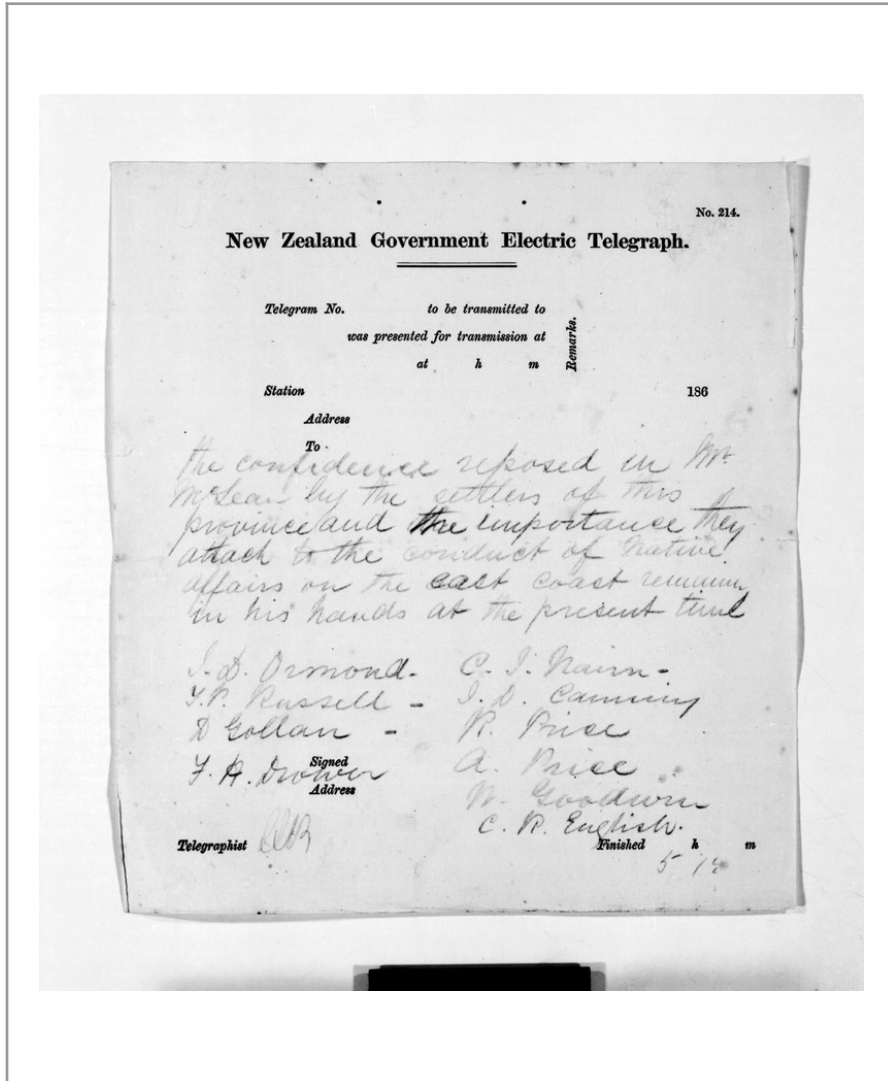 No. 214.
New Zealand Government Electric Telegraph.
Telegram No. to be transmitted to
was presented for transmission at
at h m
Remarks.
Station 186
Address
To
the confidence reposed in Mr
McLean by the settlers of this
province and the importance they
attach to the conduct of Native
affairs on the east coast
in his hands at the present time
J. D. Ormond - C. J. Nairn -
Russell - J. D. Canning
D Gollan - R. Price
F. H. Drower A. Price
Signed
Address
W. Goodwin
C. R. English.
Telegraphist Finished h m
5